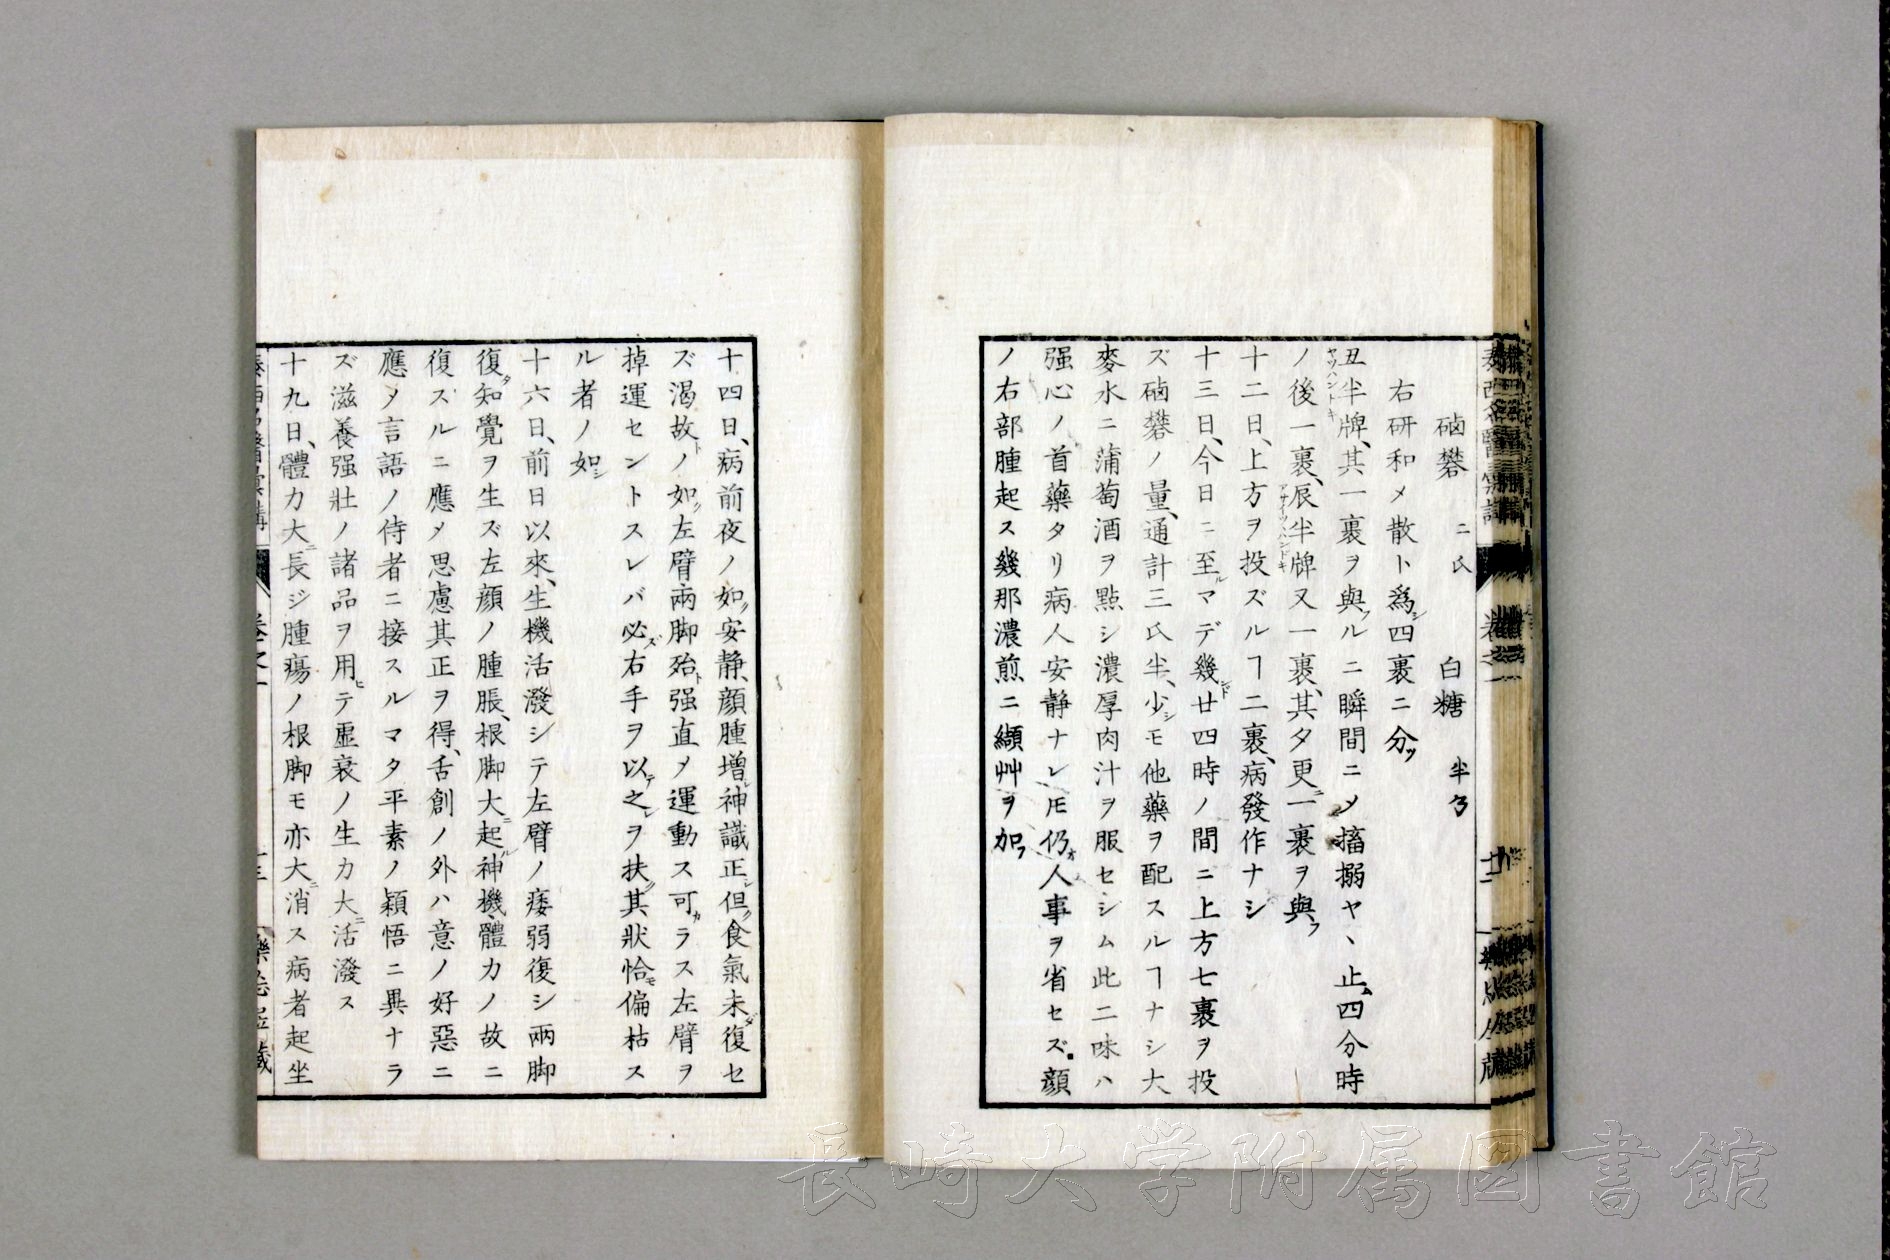 硇礬 二氏 白糖 半匁
右研和メ散ト爲シ四裹ニ分ツ
丑半牌、其一裹ヲ與フルニ瞬間ニメ搐搦ヤヽ止ム四分時
ノ後一裹、辰半牌又一裹、其夕更ニ一裹ヲ與フ
十二日、上方ヲ投ズルヿ二裹、病發作ナシ
十三日、今日ニ至ルマデ幾ンド廿四時ノ間ニ上方七裹ヲ投
ズ硇礬ノ量、通計三氏半、少シモ他藥ヲ配スルヿナシ大
麥水ニ蒲萄酒ヲ點シ濃厚肉汁ヲ服セシム此二味ハ
强心ノ首藥タリ病人安靜ナレ𪜈仍ホ人事ヲ省セズ顔
ノ右部腫起ス幾那濃煎ニ纈艸ヲ加フ
十四日、病前夜ノ如ク安靜、顔腫増シ神識正シ但シ食氣未ダ復セ
ズ渇故トノ如ク左臂兩脚殆ト强直メ運動ス可カラス左臂ヲ
掉運セントスレバ必ズ右手ヲ以テ之レヲ扶ク其狀恰モ偏枯ス
ル者ノ如シ
十六日、前日以來、生機活潑シテ左臂ノ痿弱復シ兩脚
復タ知覺ヲ生ズ左顔ノ腫脹、根脚大ニ起ル神機、體力ノ故ニ
復スルニ應メ思慮其正ヲ得、舌創ノ外ハ意ノ好惡ニ
應メ言語ノ侍者ニ接スルマタ平素ノ穎悟ニ異ナラ
ズ滋養强壯ノ諸品ヲ用ヒテ虚衰ノ生力大ニ活潑ス
十九日、體力大ニ長ジ腫瘍ノ根脚モ亦大ニ消ス病者起坐
長崎大学附属図書館